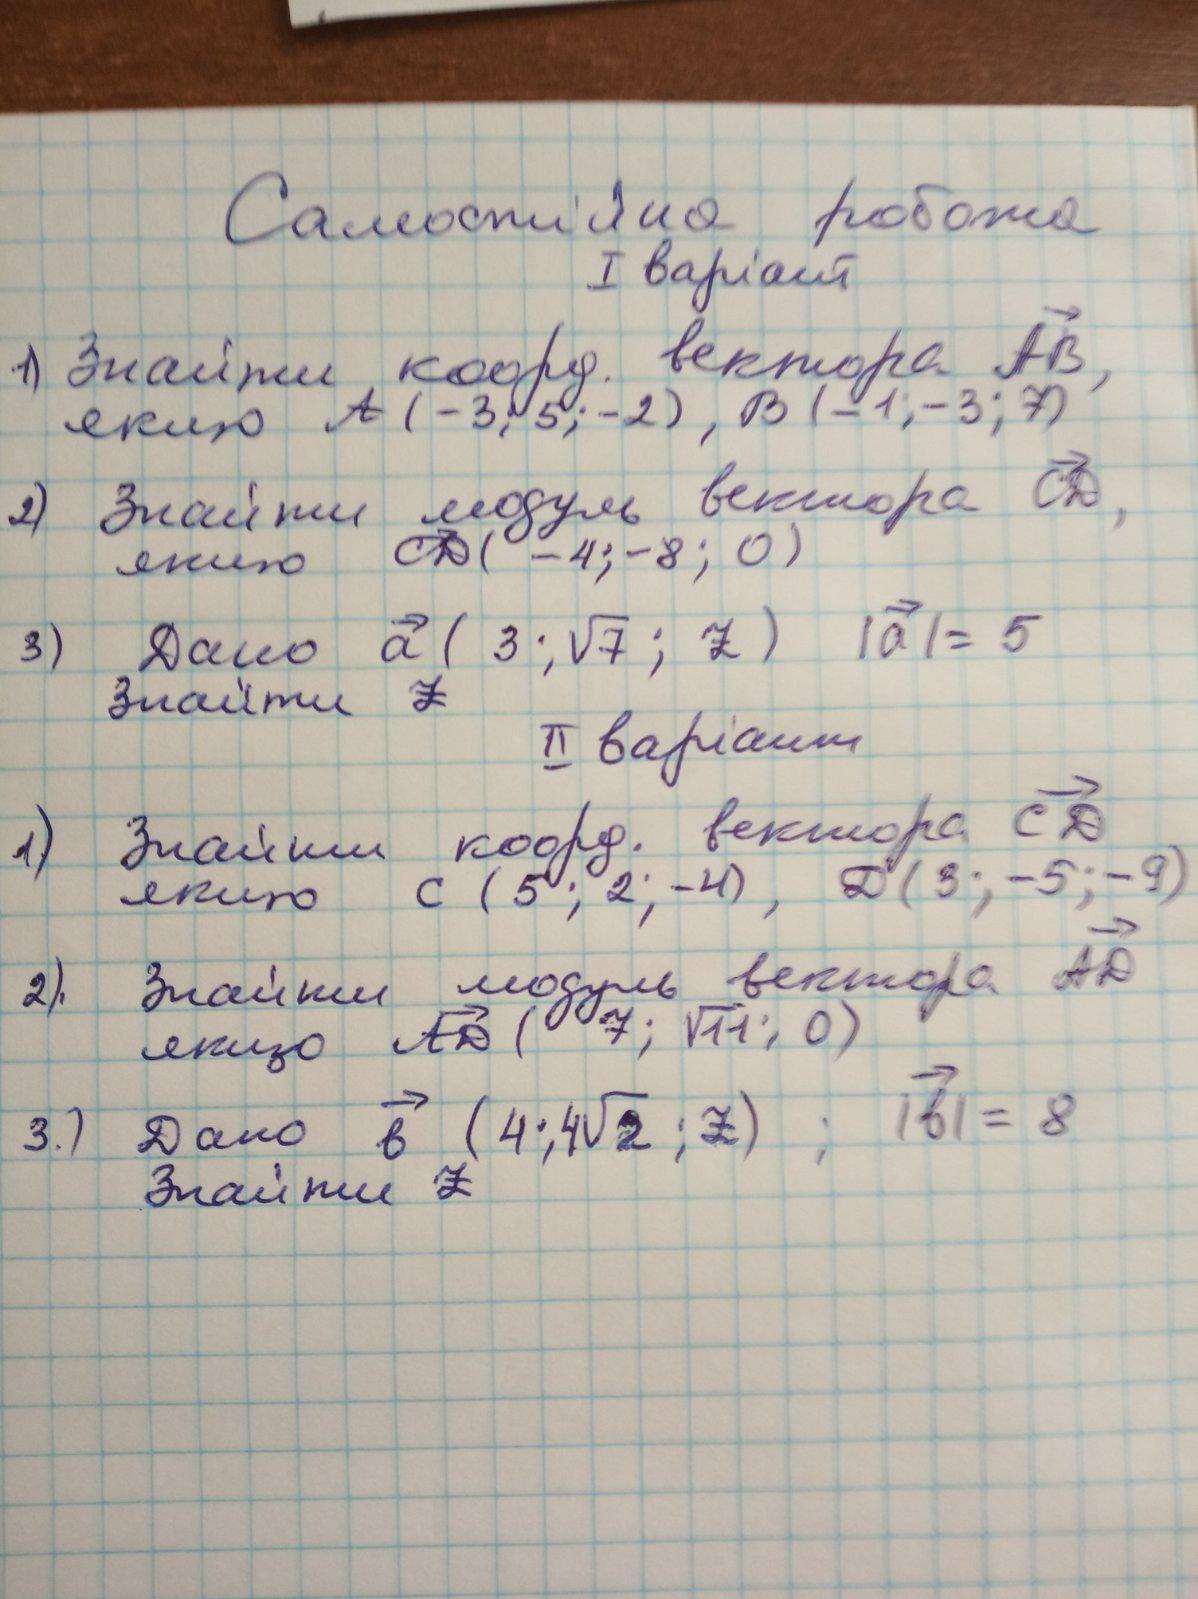 Самостійна робота
I варіант
1) Знайти коорд. вектора AB,
якщо A (-3; 5; -2), B (-1; -3; 7)
2) Знайти модуль вектора CD,
якщо CD (-4; -8; 0)
3) Дано a (3; √7; z) |a| = 5
Знайти z
II варіант
1) Знайти коорд. вектора CD
якщо C (5; 2; -4), D (3; -5; -9)
2). Знайти модуль вектора AD
якщо AD ( 7; √11; 0)
3.) Дано b (4; 4√2; z) ; |b| = 8
Знайти z